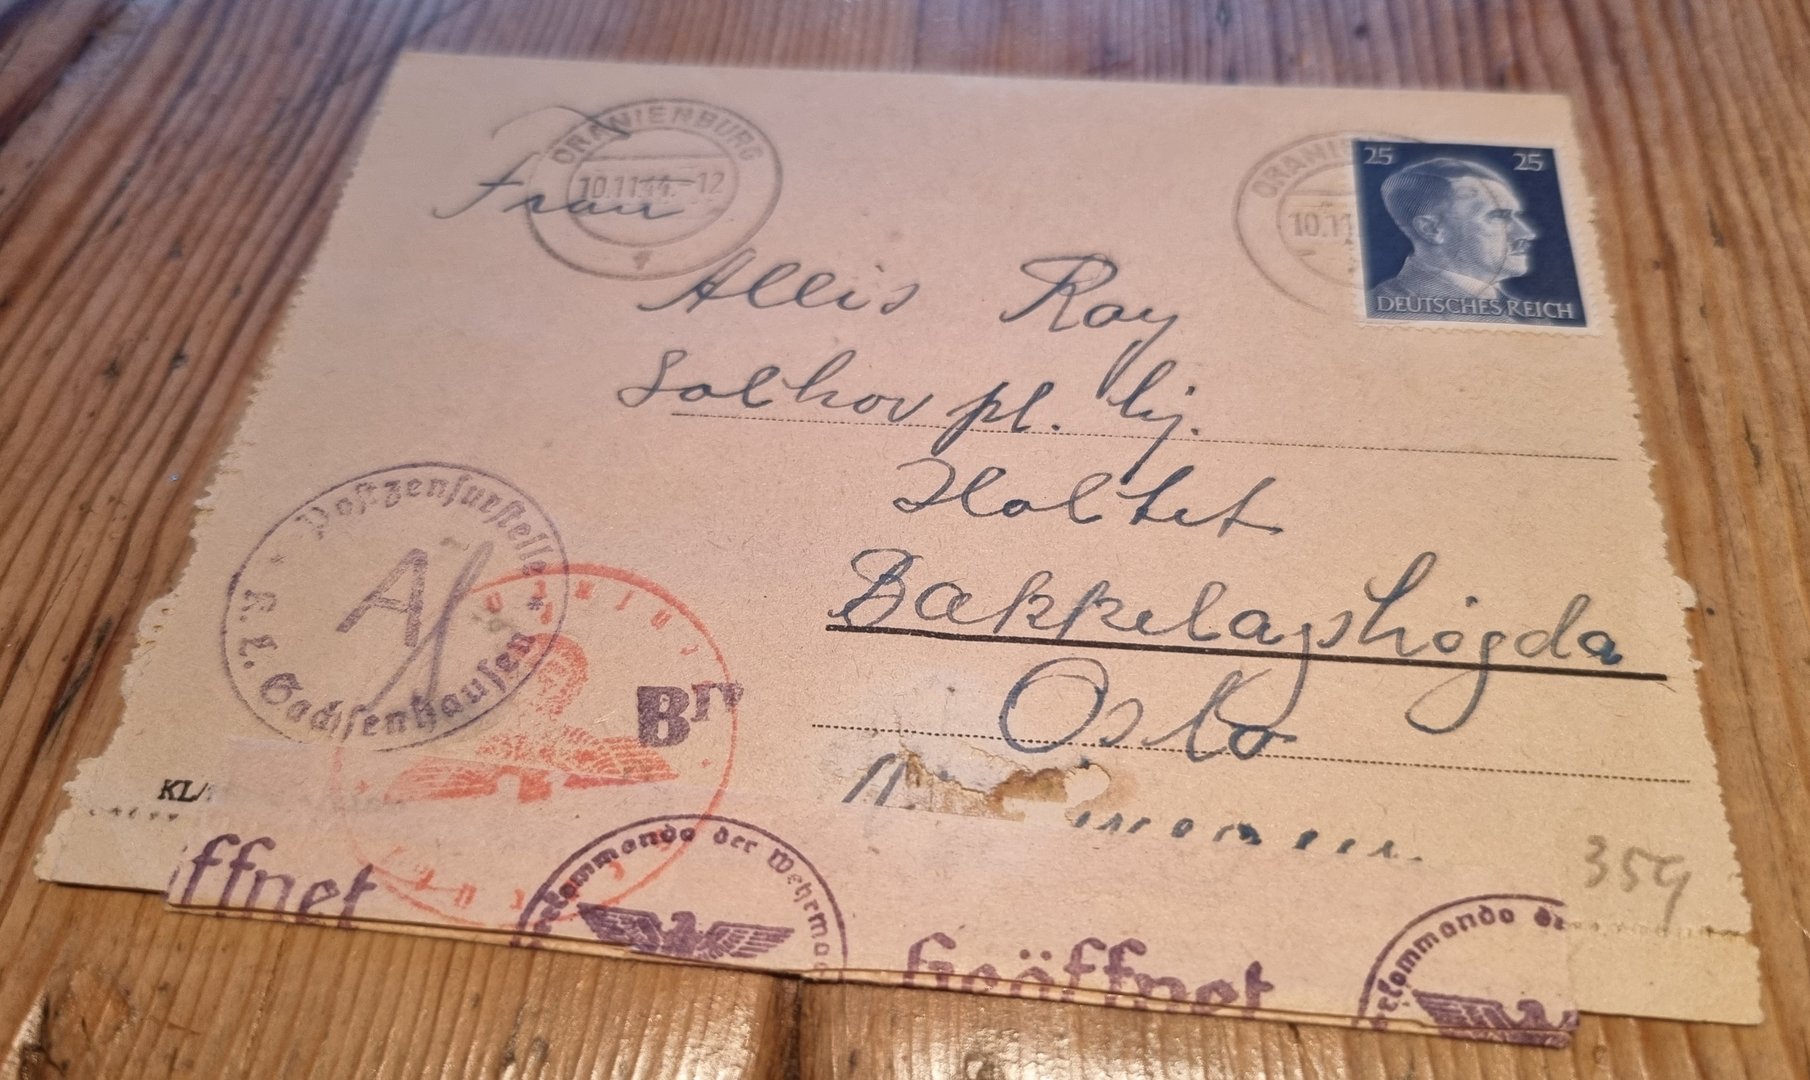 ORANIENBURG
10.11.44.-12
ORANI
10.11
25 25
DEUTSCHES REICH
Frau
Allis Ray
Solhov pl. 
Holtet
Bakkelagshögda
Oslo
Postzensurstelle
K. L. Sachsenhausen
B IV
KL/
359
öffnet
kommando der Wehrmac
Geöffnet
kommando de